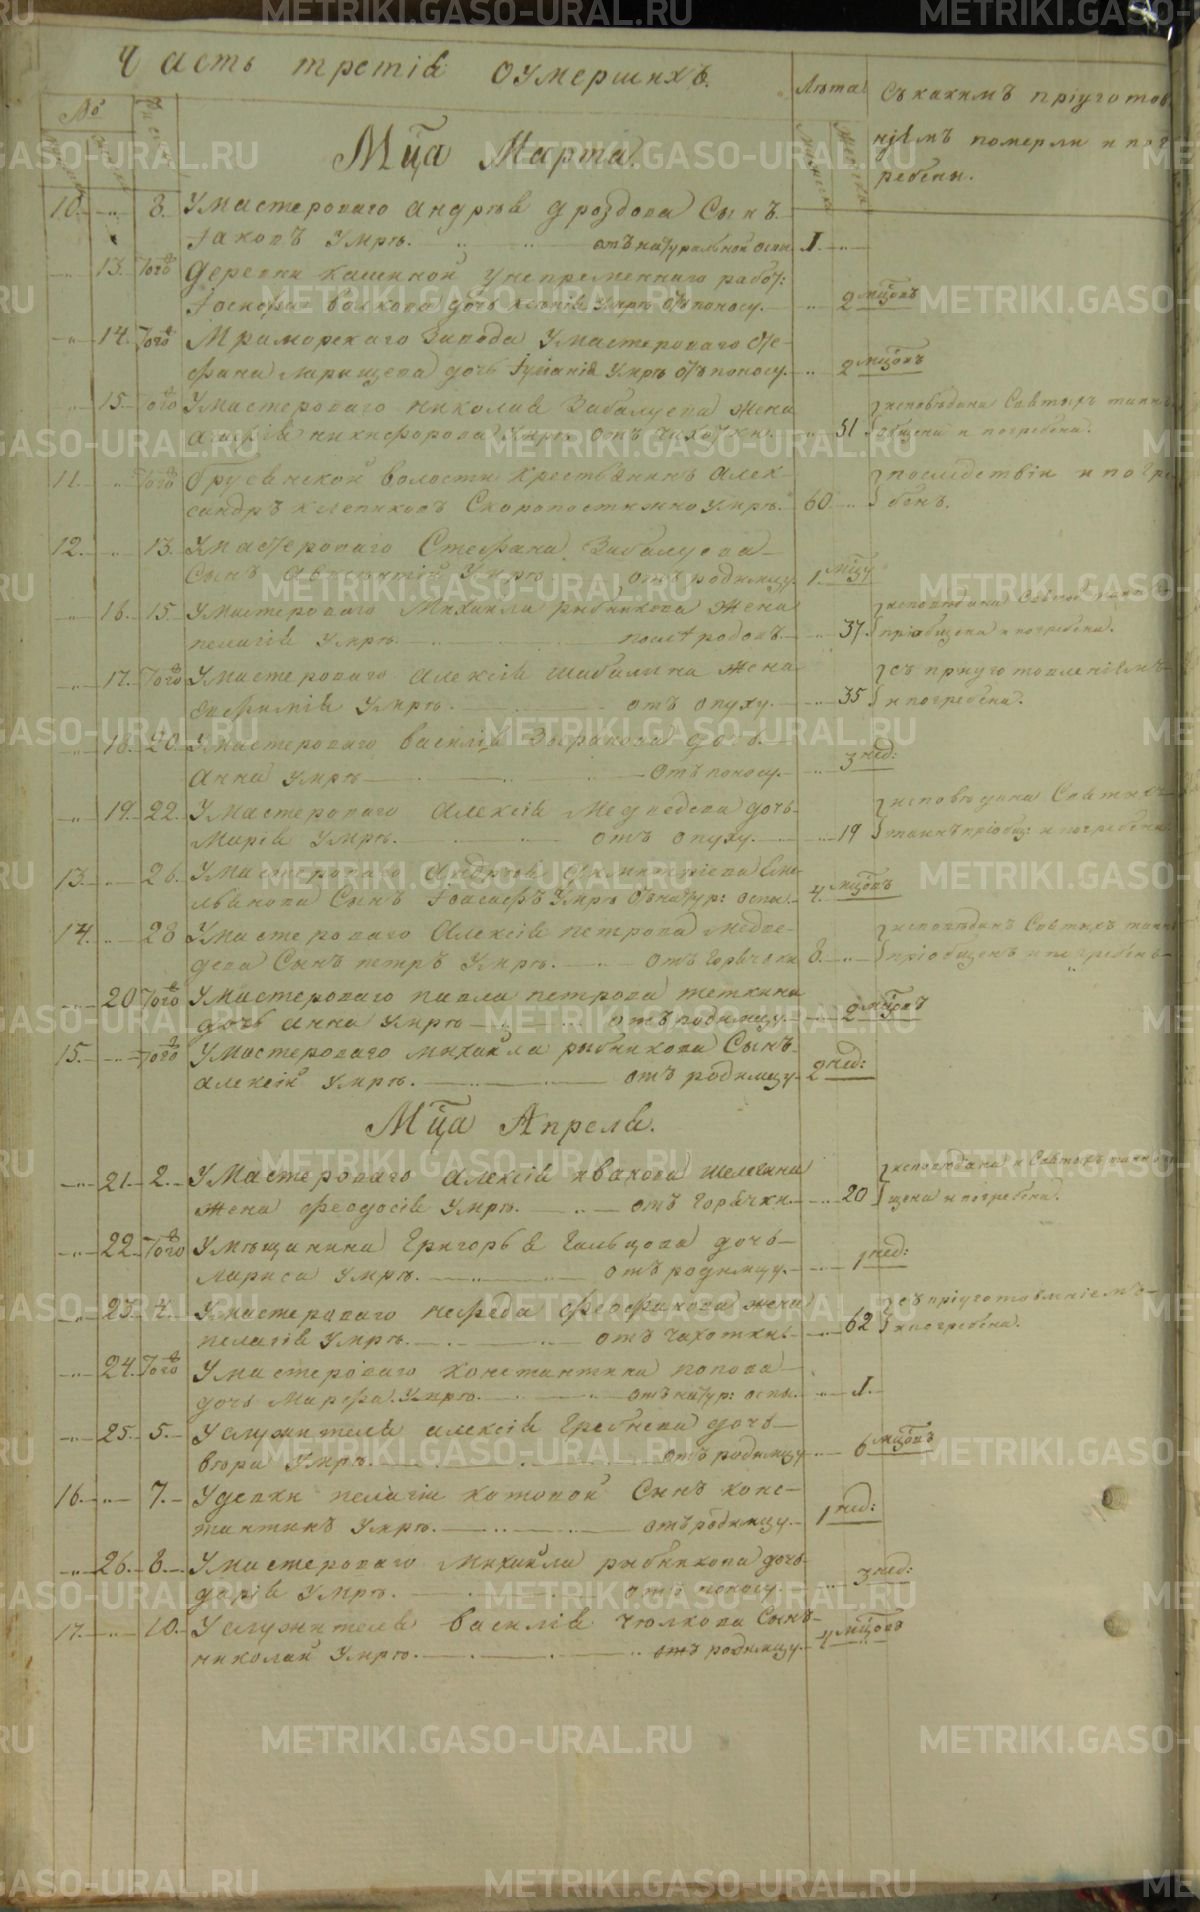 Часть третія оумершихъ.
Лѣта
Съ какимъ пріуготов
ніемъ померли и пог
ребены.
№
Мца Марта.
10. 8. У мастероваго андрѣя дроздова Сынъ
іаковъ Умре. отъ натуральной оспы 1.
13. Того деревни кашиной У непременнаго работ:
дочь Умре отъ поносу. 2 мцовъ
14. Того Мраморскаго Завода У мастероваго Сте-
фана дочь іуліанія Умре отъ поносу. 2 мцовъ
15. Того У мастероваго николая Забалуева жена
никифорова Умре отъ чахотки. 51 исповѣдана Святыхъ таинъ
общена и погребена.
11. Того волости крестьянинъ алек-
сандръ клепиковъ Скоропостижно Умре. 60. послѣдствіи и погре
бенъ.
12. 13. У мастероваго Стефана Забалуева
Сынъ Умре отъ родимцу 1. мцу
16. 15. У мастероваго Михаила рыбникова жена
пелагія Умре. послѣ родовъ. 37. исповѣдана
пріобщена и погребена.
17. Того У мастероваго алексія шабалина жена
евфимія Умре. отъ опуху. 35 съ приуготовленіемъ
и погребена.
18. 20. У мастероваго василія дочь
анна Умре отъ поносу. 3 нед:
19. 22. У мастероваго алексія Медведева дочь
Марія Умре. отъ опуху. 19 исповѣдана Святыхъ
таинъ пріобщ: и погребена
13. 26. У мастероваго андрѣя
Сынъ іоасафъ Умре отъ натур: оспы. 4. мцовъ
14. 28 У мастероваго алексія петрова Медве-
дева Сынъ петръ Умре. отъ горячки 8. исповѣданъ Святыхъ таинъ
пріобщенъ и погребенъ
20 Того У мастероваго павла петрова теткина
дочь анна Умре отъ родимцу. 2 мцовъ
15. Того У мастероваго михаила рыбникова Сынъ
алексій Умре. отъ родимцу 2 нед:
Мца Апреля.
21. 2. У Мастероваго алексія
жена феодосія Умре. отъ горячки. 20 исповѣдана и Святыхъ таинъ
щена и погребена.
22. Того У мѣщанина Григорья Гальцова дочь
лариса Умре. отъ родимцу. 1 нед:
23. 4. У мастероваго нефеда феофанова жена
пелагія Умре. отъ чахотки 62 съ пріуготовленіемъ
и погребена.
24. Того У мастероваго константина попова
дочь Марфа Умре. отъ натур: оспы. 1.
25. 5. У служителя алексія Гребнева дочь
Умре. отъ родимцу 6 мцовъ
16. 7. У девки пелагіи котовой Сынъ конс-
тантинъ Умре. отъ родимцу. 1 нед:
26. 8. У мастероваго Михаила рыбникова дочь
дарія Умре. отъ поносу. 3 нед:
17. 10. У служителя василія чюлкова Сынъ
николай Умре. отъ родимцу. 4 мцовъ
METRIKI.GASO-URAL.RU